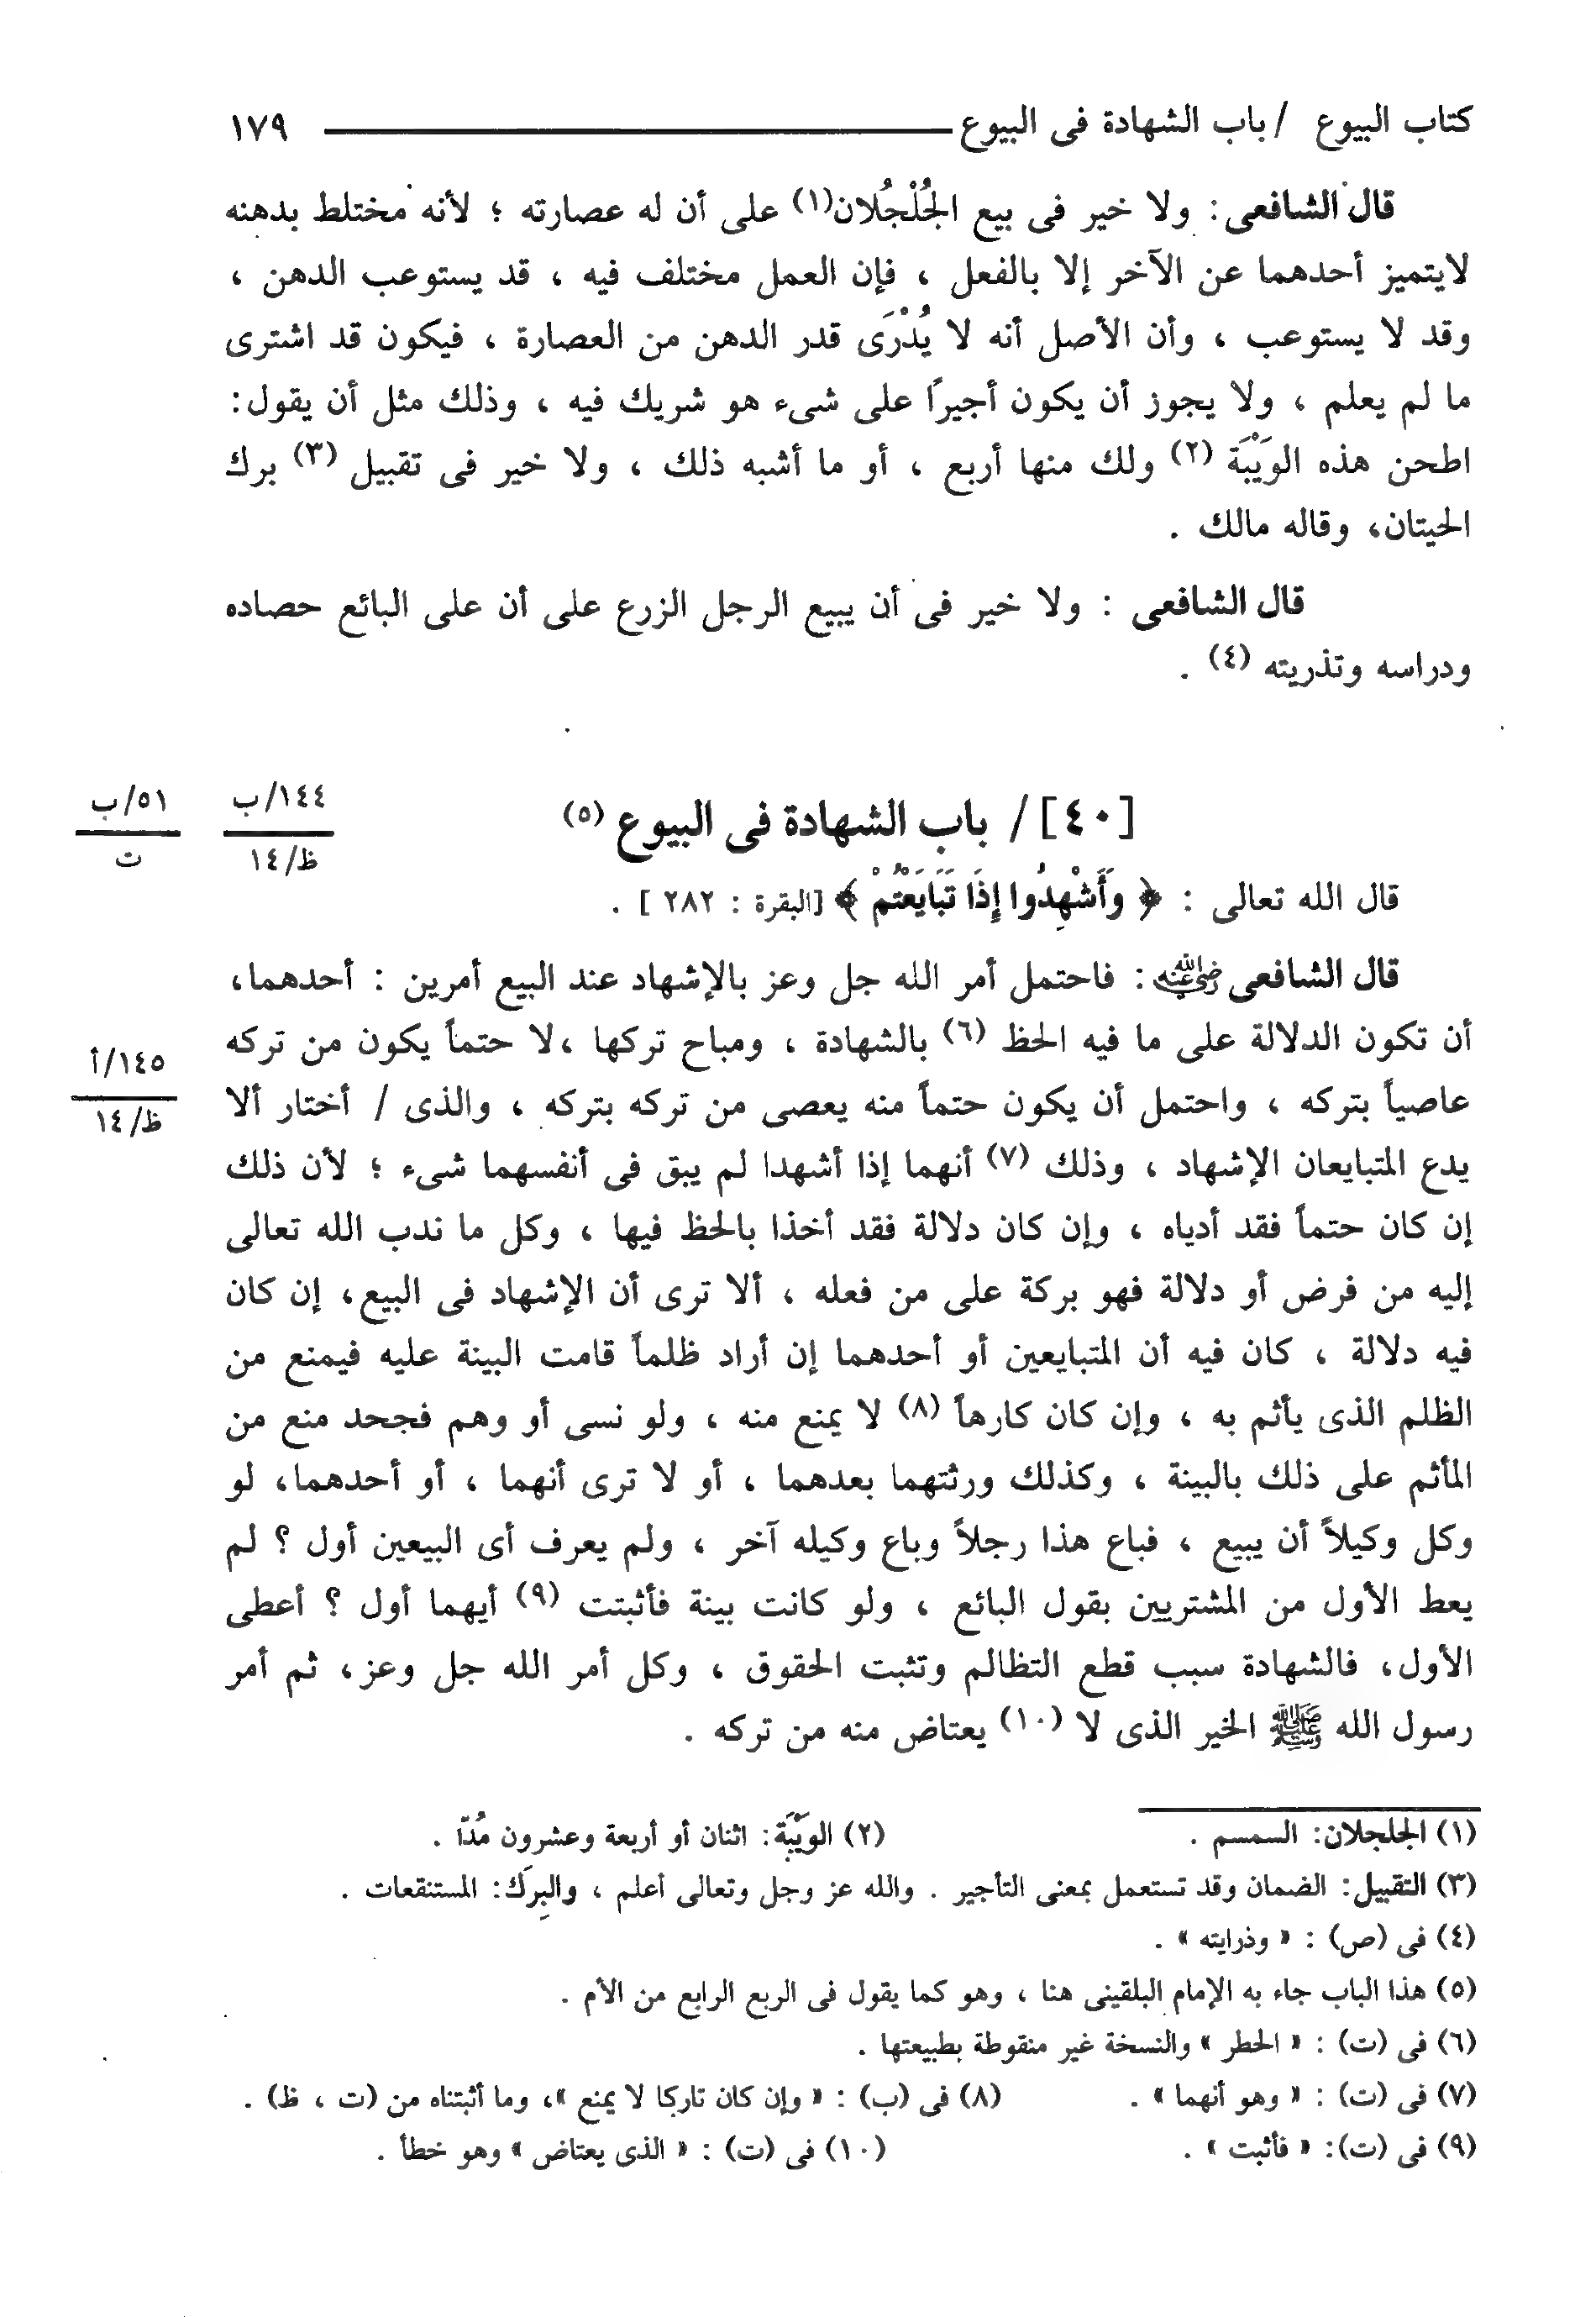 كتاب البيوع / باب الشهادة فى البيوع ١٧٩
قال الشافعى : ولا خير فى بيع الجُلْجُلان(١) على أن له عصارته ؛ لأنه مختلط بدهنه
لايتميز أحدهما عن الآخر إلا بالفعل ، فإن العمل مختلف فيه ، قد يستوعب الدهن ،
وقد لا يستوعب ، وأن الأصل أنه لا يُدْرَى قدر الدهن من العصارة ، فيكون قد اشترى
ما لم يعلم ، ولا يجوز أن يكون أجيراً على شىء هو شريك فيه ، وذلك مثل أن يقول:
اطحن هذه الوَيْبَة (٢) ولك منها أربع ، أو ما أشبه ذلك ، ولا خير فى تقبيل (٣) برك
الحيتان، وقاله مالك .
قال الشافعى : ولا خير فى أن يبيع الرجل الزرع على أن على البائع حصاده
ودراسه وتذريته (٤) .
١٤٤/ب
ظ/١٤
٥١/ب
ت
[٤٠] / باب الشهادة فى البيوع (٥)
قال الله تعالى : ﴿ وَأَشْهِدُوا إِذَا تَبَايَعْتُمْ ﴾ [البقرة : ٢٨٢ ] .
قال الشافعى رضي الله عنه : فاحتمل أمر الله جل وعز بالإشهاد عند البيع أمرين : أحدهما،
أن تكون الدلالة على ما فيه الحظ (٦) بالشهادة ، ومباح تركها ،لا حتماً يكون من تركه
١٤٥/أ
ظ/١٤
عاصياً بتركه ، واحتمل أن يكون حتماً منه يعصى من تركه بتركه ، والذى / أختار ألا
يدع المتبايعان الإشهاد ، وذلك (٧) أنهما إذا أشهدا لم يبق فى أنفسهما شىء ؛ لأن ذلك
إن كان حتماً فقد أدياه ، وإن كان دلالة فقد أخذا بالحظ فيها ، وكل ما ندب الله تعالى
إليه من فرض أو دلالة فهو بركة على من فعله ، ألا ترى أن الإشهاد فى البيع، إن كان
فيه دلالة ، كان فيه أن المتبايعين أو أحدهما إن أراد ظلماً قامت البينة عليه فيمنع من
الظلم الذى يأثم به ، وإن كان كارهاً (٨) لا يمنع منه ، ولو نسى أو وهم فجحد منع من
المأثم على ذلك بالبينة ، وكذلك ورثتهما بعدهما ، أو لا ترى أنهما ، أو أحدهما، لو
وكل وكيلاً أن يبيع ، فباع هذا رجلاً وباع وكيله آخر ، ولم يعرف أى البيعين أول ؟ لم
يعط الأول من المشتريين بقول البائع ، ولو كانت بينة فأثبتت (٩) أيهما أول ؟ أعطى
الأول، فالشهادة سبب قطع التظالم وتثبت الحقوق ، وكل أمر الله جل وعز، ثم أمر
رسول الله ﷺ الخير الذى لا (١٠) يعتاض منه من تركه .
(١) الجلجلان: السمسم . (٢) الوَيْبَة: اثنان أو أربعة وعشرون مُدّا .
(٣) التقبيل: الضمان وقد تستعمل بمعنى التأجير . والله عز وجل وتعالى أعلم ، والبِرَك: المستنقعات .
(٤) فى (ص) : « وذرايته » .
(٥) هذا الباب جاء به الإمام البلقينى هنا ، وهو كما يقول فى الربع الرابع من الأم .
(٦) فى (ت) : « الحطر » والنسخة غير منقوطة بطبيعتها .
(٧) فى (ت) : « وهو أنهما » . (٨) فى (ب) : « وإن كان تاركا لا يمنع »، وما أثبتناه من (ت ، ظ) .
(٩) فى (ت): « فأثبت » . (١٠) فى (ت) : « الذى يعتاض » وهو خطأ .